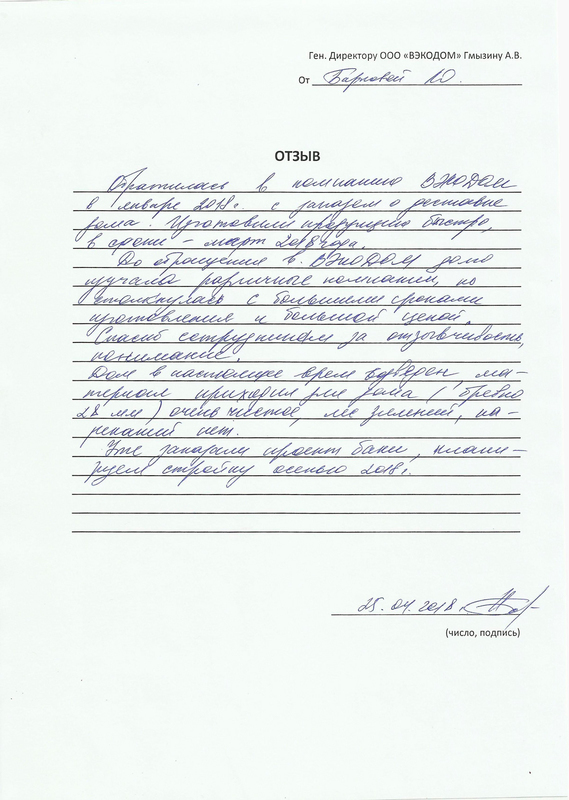 Ген. Директору ООО «ВЭКОДОМ» Гмызину А.В.
От Барковей Ю.
ОТЗЫВ
Обратилась в компанию ВЭкоДом
в январе 2018г. с заказом о доставке
дома. Изготовили продукцию быстро,
в сроки – март 2018 года.
До обращения в ВЭкоДом долго
изучала различные компании, но
столкнулась с большими сроками
изготовления и большой ценой.
Спасиб сотрудникам за отзывчивость
понимание.
Дом в настоящее время возведен, ма-
териал приходил для дома (бревно
28 мм) очень чистое, лес зеленый, на-
реканий нет.
Уже заказали проект бани, плани-
руем стройку осенью 2018г.
25.04.2018
(число, подпись)